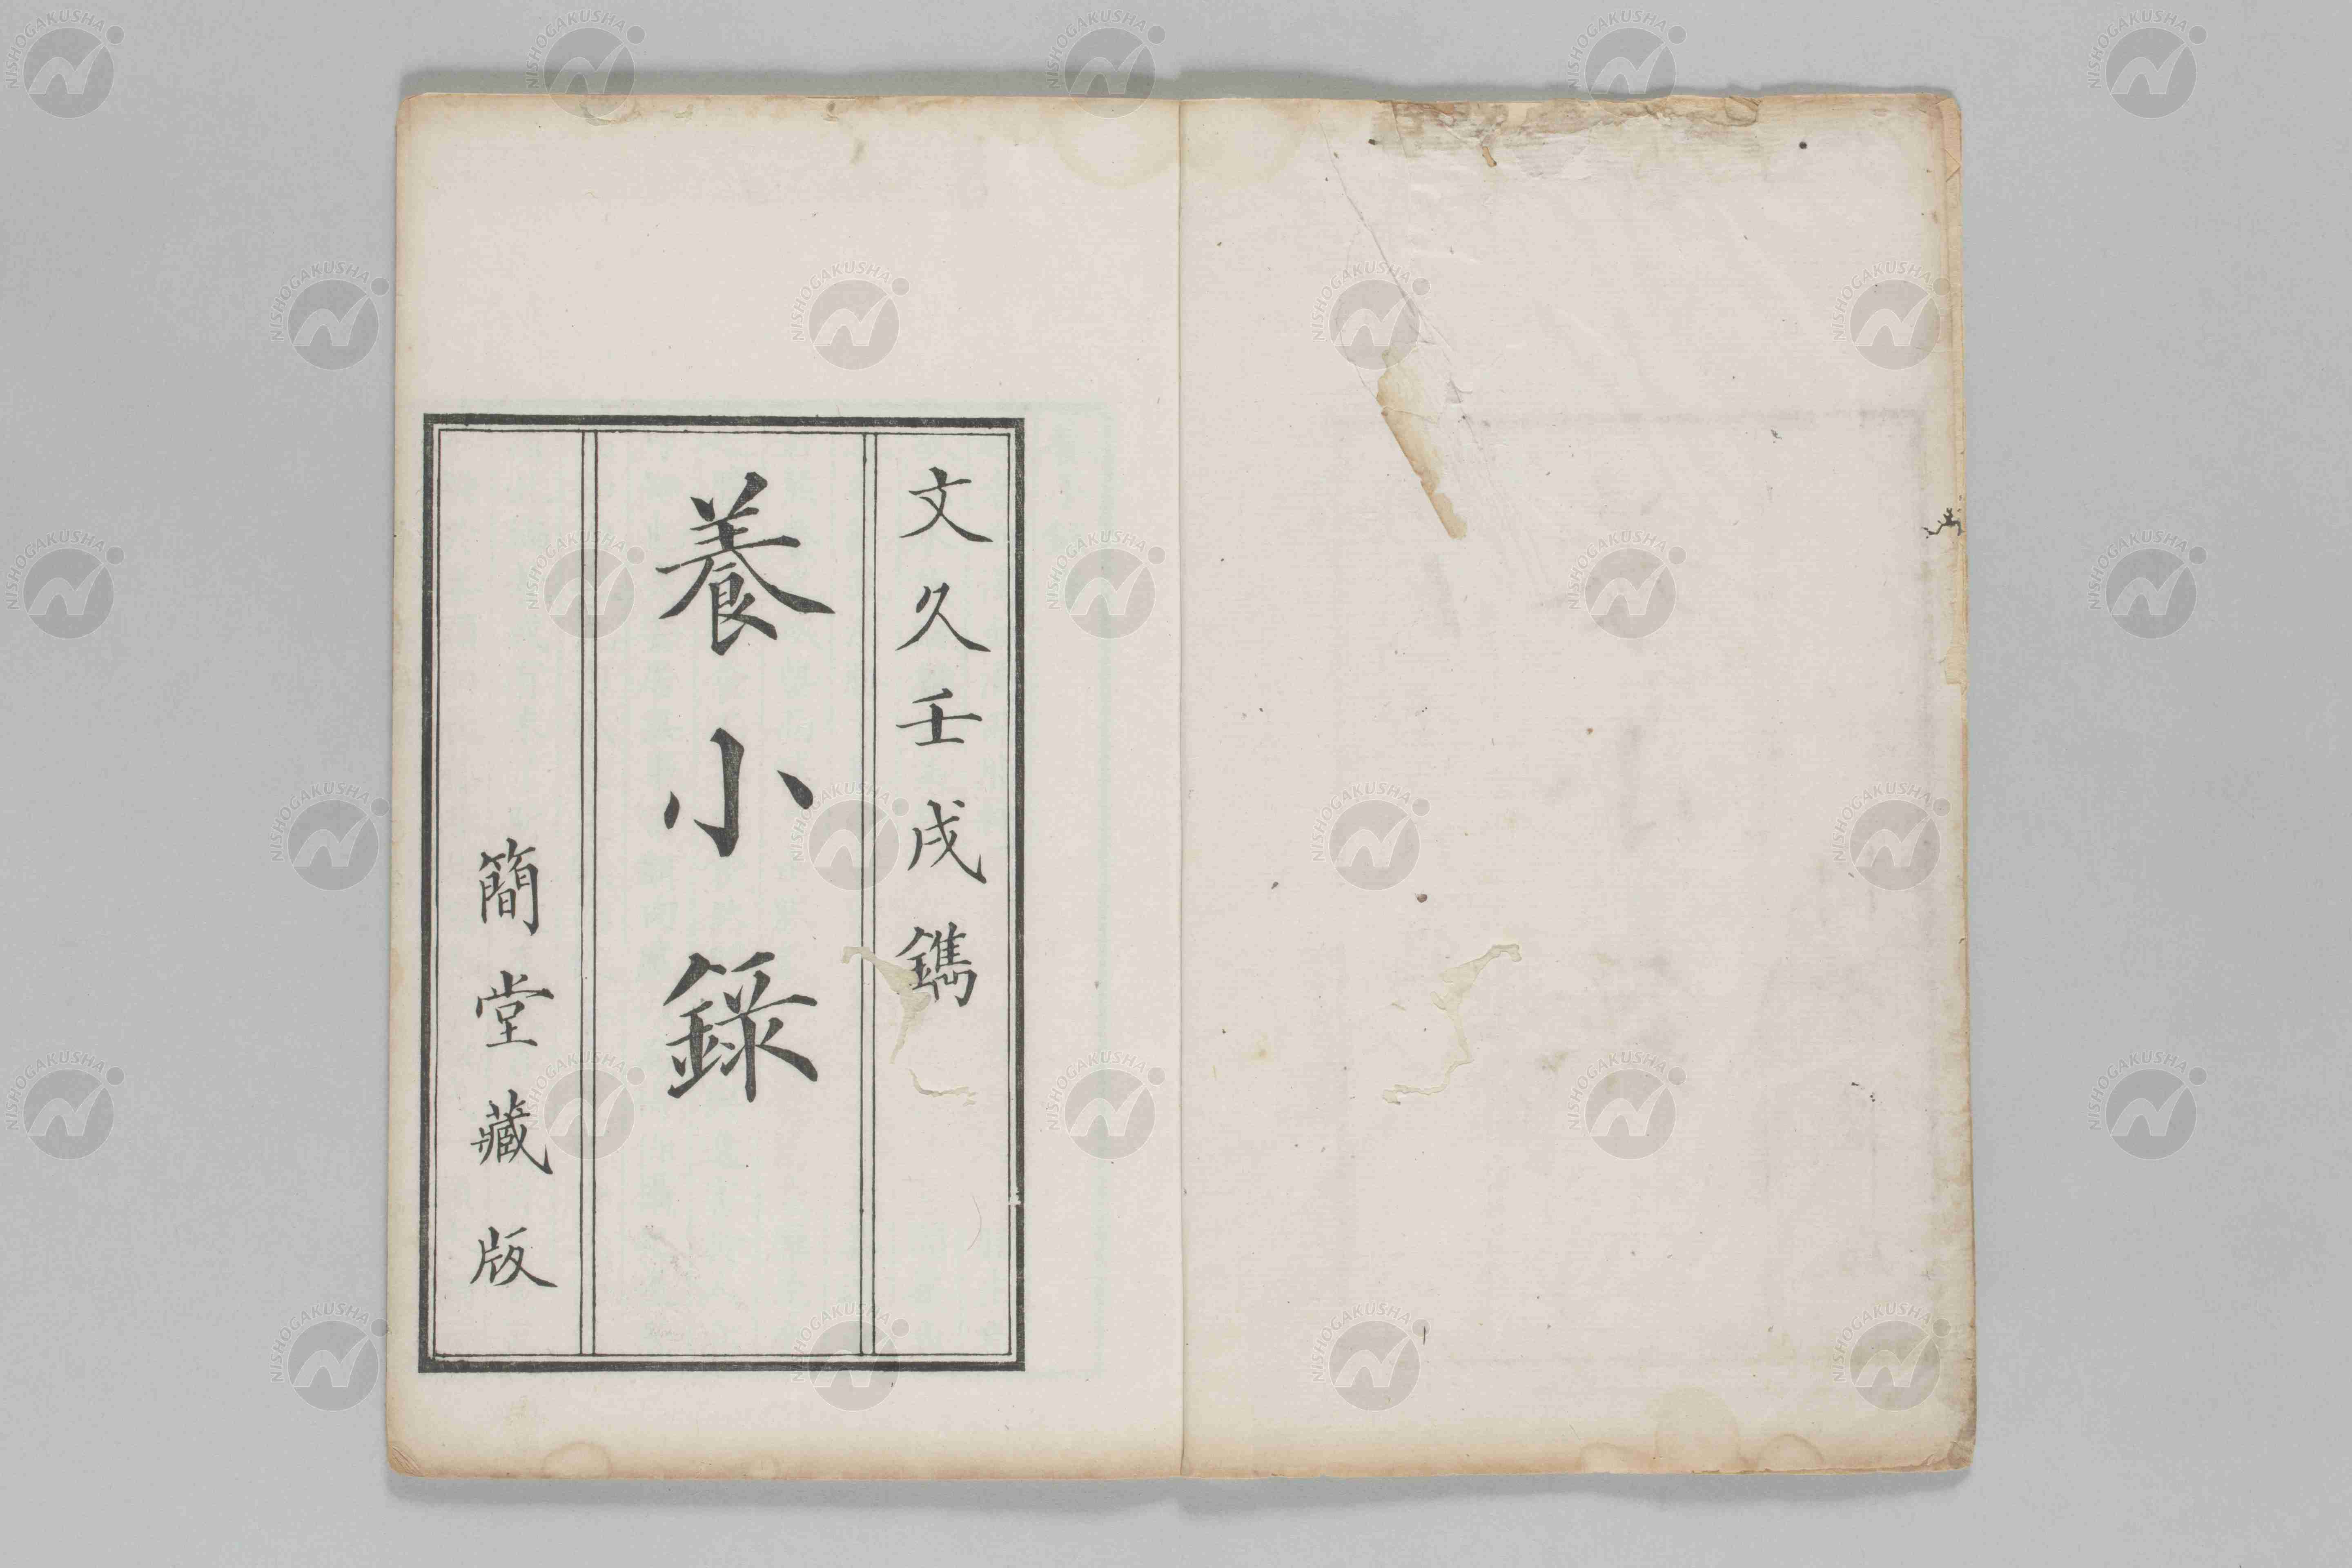 文久壬戌鐫
養小錄
簡堂藏版
NISHOGAKUSHA